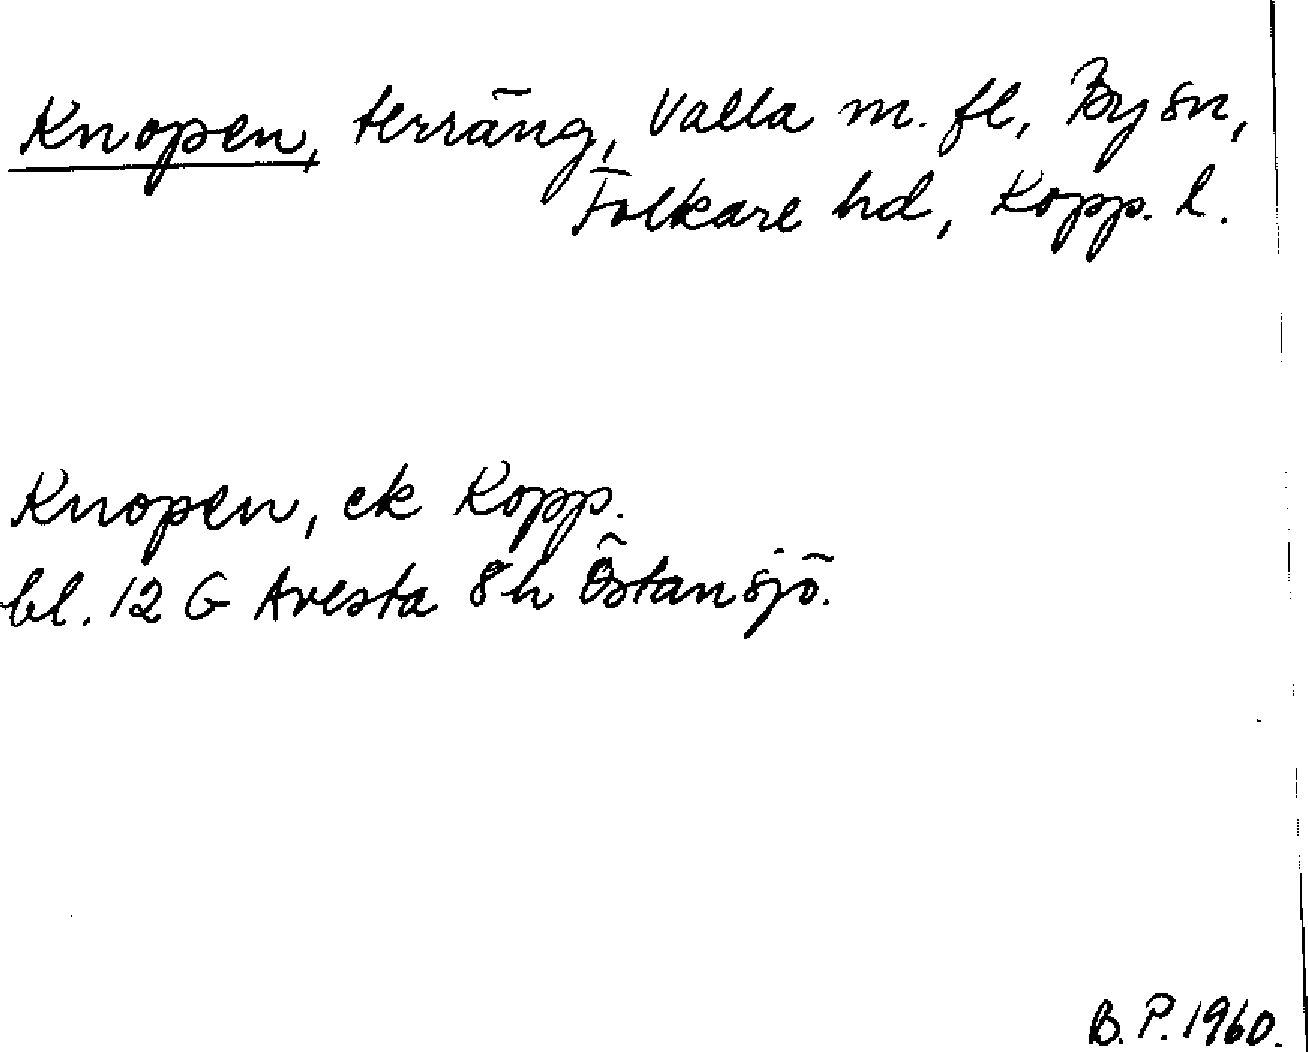 Knopen, terräng, Valla m. fl, By sn,
Folkare hd, Kopp. l.
Knopen, ek Kopp.
bl. 12 G Avesta 8h Östansjö.
B. P. 1960.